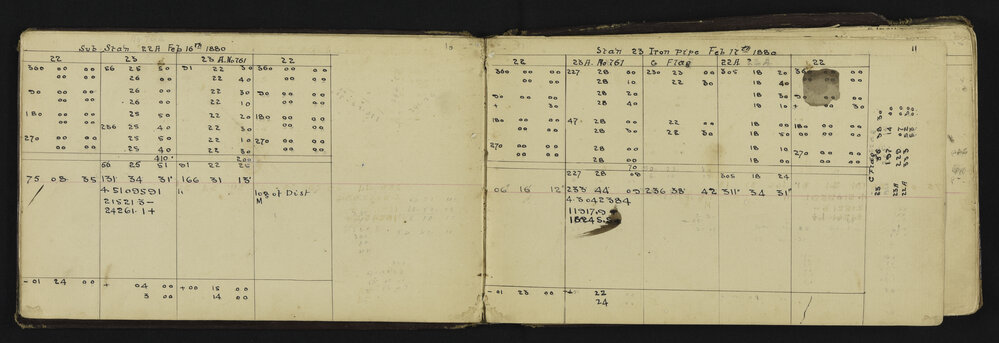 Sub Stan 22A Feb 16th 1880
10
22 23 23 A. No 761 22
360 00 00 56 25 50 81 22 30 360 00 00
00 00 26 00 22 40 00 00
90 00 00 26 00 22 30 90 00 00
00 00 26 00 22 10 00 00
180 00 00 25 50 22 20 180 00 00
00 00 236 25 40 22 30 00 00
270 00 00 25 50 22 10 270 00 00
00 00 25 40 22 30 00 00
410 200
56 25 51 81 22 25
75 08 35 131 34 31 166 31 13
4.5109591 " log of Dist
21521.3 - M
24261.1 +
- 01 24 00 + 04 00 + 00 15 00
3 00 14 00
Stan 23 Iron pipe Feb 17th 1880
11
22 23 A. No 761 G Flag 22 A 22
360 00 00 227 28 00 230 23 00 305 18 20 00
00 00 28 10 22 30 18 40 00 00
90 00 00 28 20 18 30 00
+ 30 28 40 18 10 + 30
180 00 00 47 28 00 22 00 18 00 180 00 00
00 00 28 30 22 30 18 50 00 00
270 00 00 28 00 18 00 270 00 00
00 00 28 00 18 00 00 00
70
227 28 08 305 18 24
06 16 12 233 44 09 236 38 42 311 34 31
4.3042384
11917.9
18245.5
- 01 23 00 + 22
24
G Flag
23
23A
22A